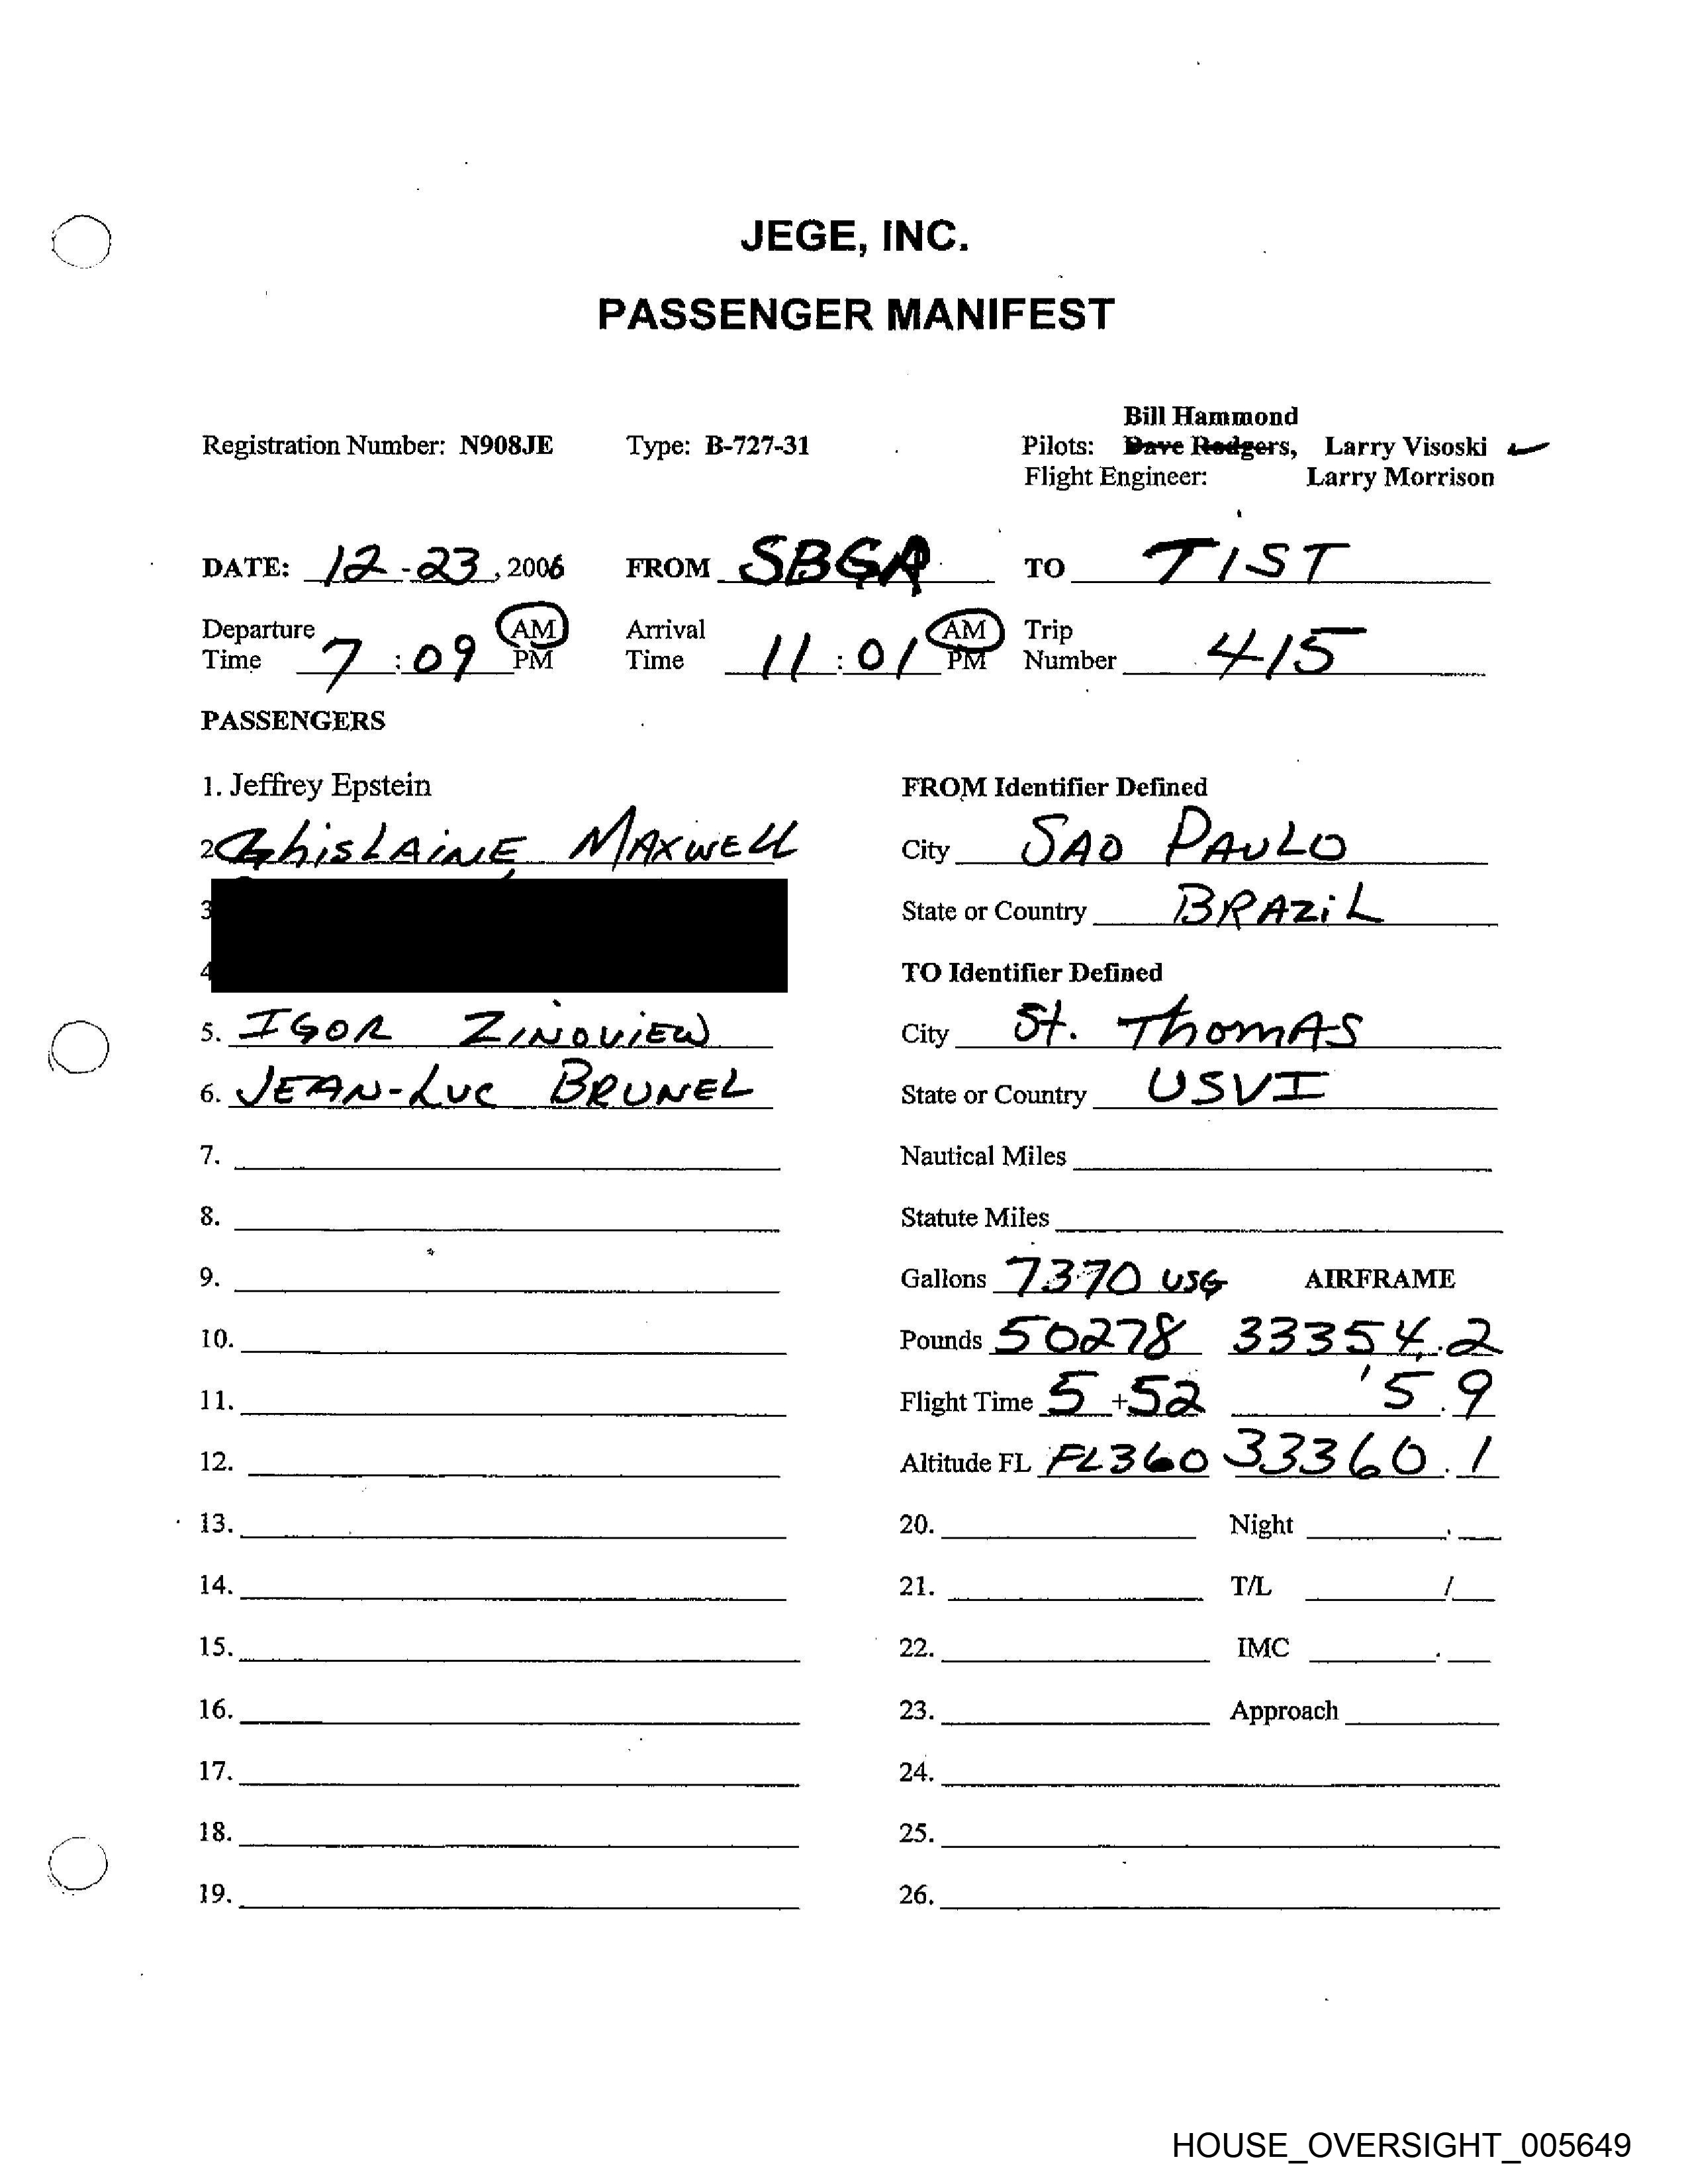 JEGE, INC.
PASSENGER MANIFEST
Bill Hammond
Registration Number: N908JE Type: B-727-31 Pilots: Dave Rodgers, Larry Visoski
Flight Engineer: Larry Morrison
DATE: 12-23, 2006 FROM SBGR TO TIST
Departure Time 7:09 AM PM Arrival Time 11:01 AM PM Trip Number 415
PASSENGERS
1. Jeffrey Epstein FROM Identifier Defined
2 GhisLAiNE MAXWELL City SAO PAULO
3 State or Country BRAZiL
4 TO Identifier Defined
5. IGOR ZINOVIEW City St. ThomAS
6. JEAN-Luc BRUNEL State or Country USVI
7. Nautical Miles
8. Statute Miles
9. Gallons 7370 USG AIRFRAME
10. Pounds 50278 33354.2
11. Flight Time 5+52 5.9
12. Altitude FL FL360 33360.1
13. 20. Night .
14. 21. T/L /
15. 22. IMC .
16. 23. Approach
17. 24.
18. 25.
19. 26.
HOUSE_OVERSIGHT_005649